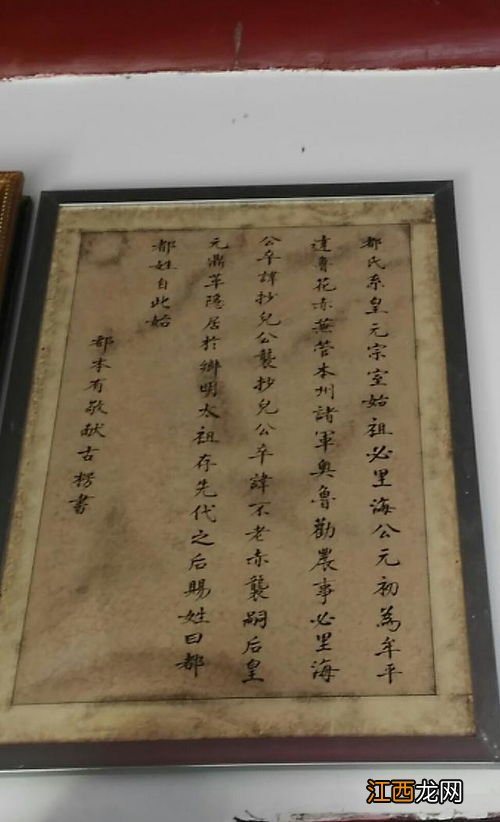 都氏系皇元宗室始祖必里海公元初為牟平
達魯花赤兼管本州諸軍奥魯勸農事必里海
公卒諱抄兒公襲抄兒公卒諱不老赤襲嗣后皇
元鼎革隐居於鄉明太祖存先代之后賜姓曰都
都姓自此始
都本有敬献古楞書
江西龙网